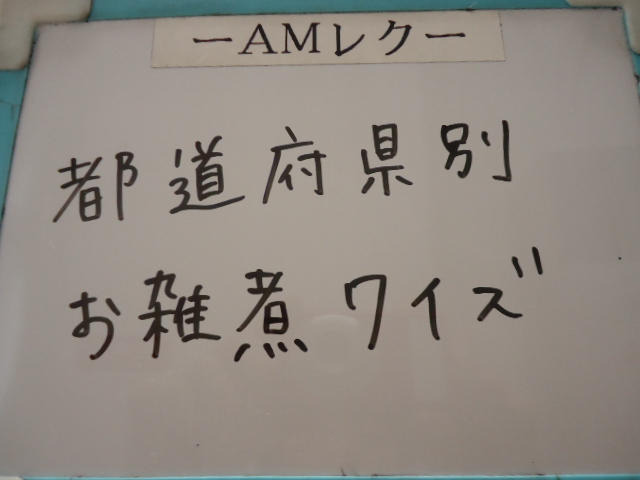 ーAMレクー
都道府県別
お雑煮クイズ